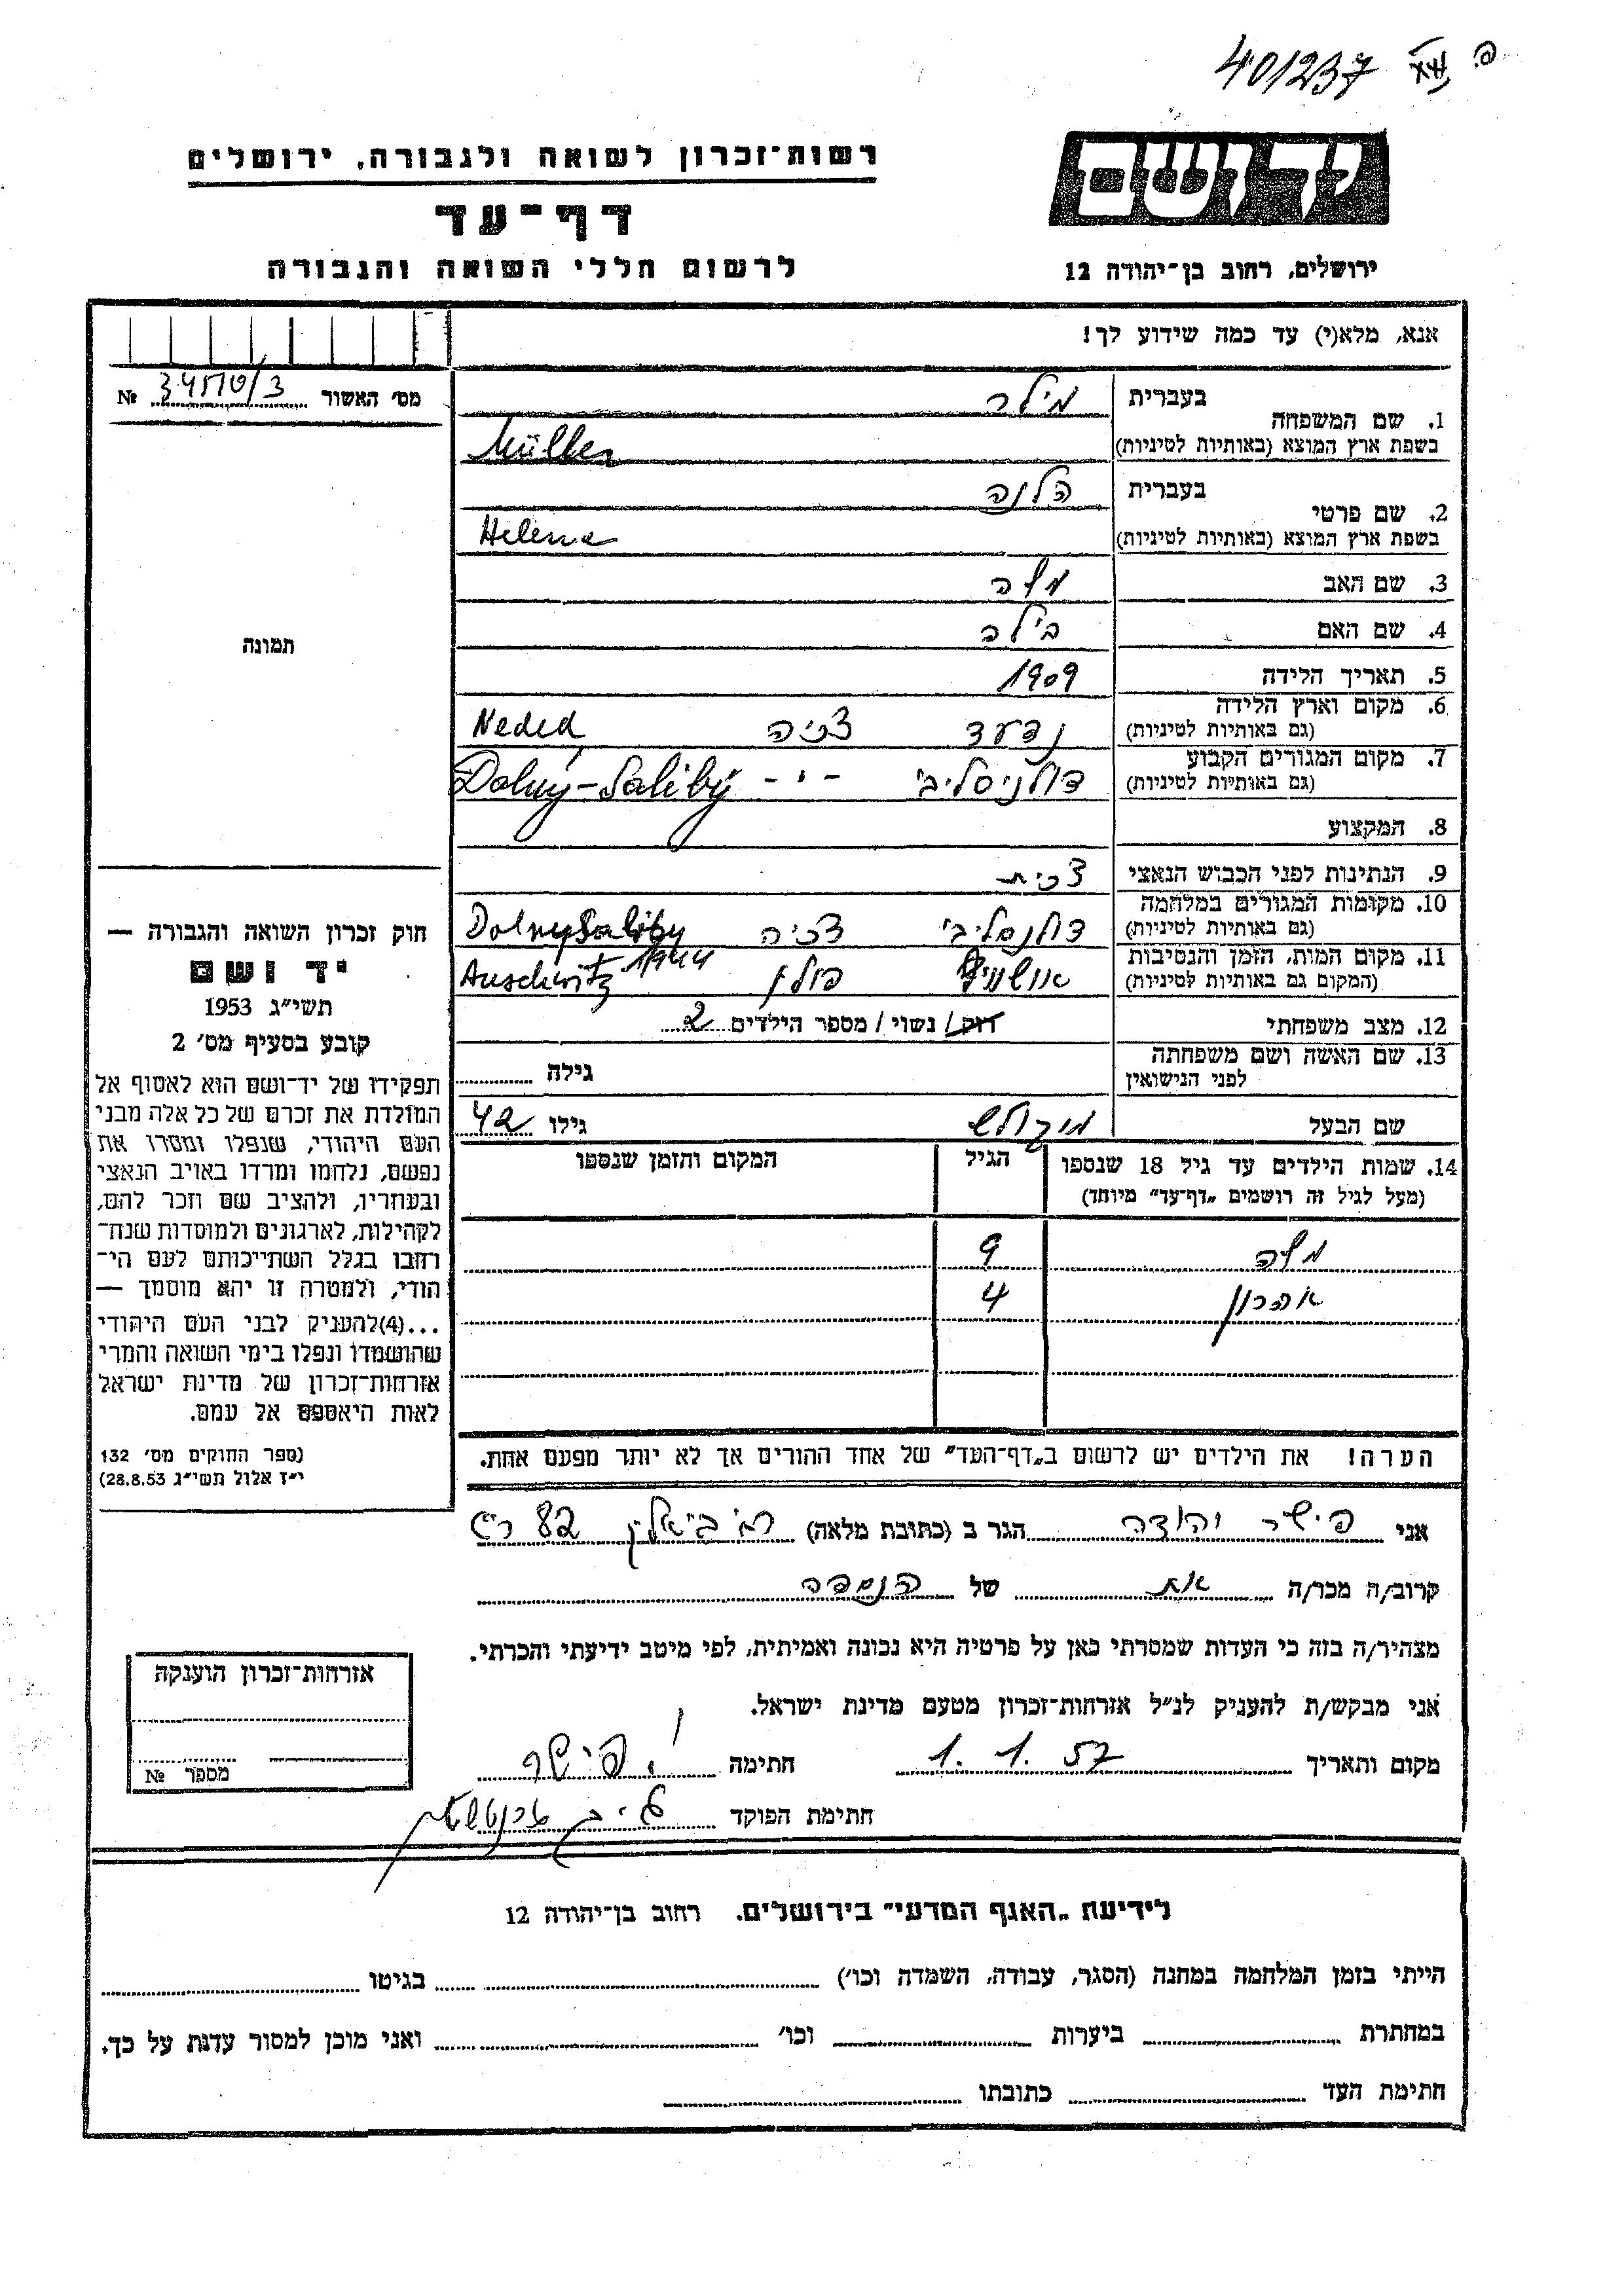 401237
יד ושם
רשות-זכרון לשואה ולגבורה, ירושלים
דף-עד
לרשום חללי השואה והגבורה
ירושלים, רחוב בן-יהודה 12
אנא, מלא(י) עד כמה שידוע לך!
מס׳ האשור №
1. שם המשפחה בעברית מילר
בשפת ארץ המוצא (באותיות לטיניות) Müller
2. שם פרטי בעברית הלנה
בשפת ארץ המוצא (באותיות לטיניות) Helena
3. שם האב משה
4. שם האם בילה
5. תאריך הלידה 1909
6. מקום וארץ הלידה (גם באותיות לטיניות) נדעד צכיה Neded
7. מקום המגורים הקבוע (גם באותיות לטיניות) דולניסליבי -"- Dolný-Saliby
8. המקצוע
9. הנתינות לפני הכבוש הנאצי צכית
10. מקומות המגורים במלחמה (גם באותיות לטיניות) דולנסליבי צכיה Dolny Saliby
11. מקום המות, הזמן והנסיבות (המקום גם באותיות לטיניות) פולין Auschwitz 1944
12. מצב משפחתי רווק / נשוי / מספר הילדים 2
13. שם האשה ושם משפחתה לפני הנישואין גילה
שם הבעל מיקולש גילו 42
14. שמות הילדים עד גיל 18 שנספו הגיל המקום והזמן שנספו
(מעל לגיל זה רושמים „דף-עד" מיוחד)
משה 9
אהרון 4
הערה! את הילדים יש לרשום ב„דף-העד" של אחד ההורים אך לא יותר מפעם אחת.
תמונה
חוק זכרון השואה והגבורה —
יד ושם
תשי״ג 1953
קובע בסעיף מס׳ 2
תפקידו של יד-ושם הוא לאסוף אל
המולדת את זכרם של כל אלה מבני
העם היהודי, שנפלו ומסרו את
נפשם, נלחמו ומרדו באויב הנאצי
ובעוזריו, ולהציב שם וזכר להם,
לקהילות, לארגונים ולמוסדות שנח-
רבו בגלל השתייכותם לעם הי-
הודי, ולמטרה זו יהא מוסמך —
...(4)להעניק לבני העם היהודי
שהושמדו ונפלו בימי השואה והמרי
אזרחות-זכרון של מדינת ישראל
לאות היאספם אל עמם.
(ספר החוקים מס׳ 132
י״ז אלול תשי״ג 28.8.53)
אני פישר יהודה הגר ב (כתובת מלאה) רח׳ ביאליק 82
קרוב/ה מכר/ה של הנספה
מצהיר/ה בזה כי העדות שמסרתי כאן על פרטיה היא נכונה ואמיתית, לפי מיטב ידיעתי והכרתי.
אני מבקש/ת להעניק לנ״ל אזרחות-זכרון מטעם מדינת ישראל.
מקום והתאריך 1. 1. 57 חתימה י. פישר
חתימת הפוקד
אזרחות-זכרון הוענקה
מספר №
לידיעת „האגף המדעי" בירושלים. רחוב בן-יהודה 12
הייתי בזמן המלחמה במחנה (הסגר, עבודה, השמדה וכו׳) בגיטו
במחתרת ביערות וכו׳ ואני מוכן למסור עדות על כך.
חתימת העד כתובתו